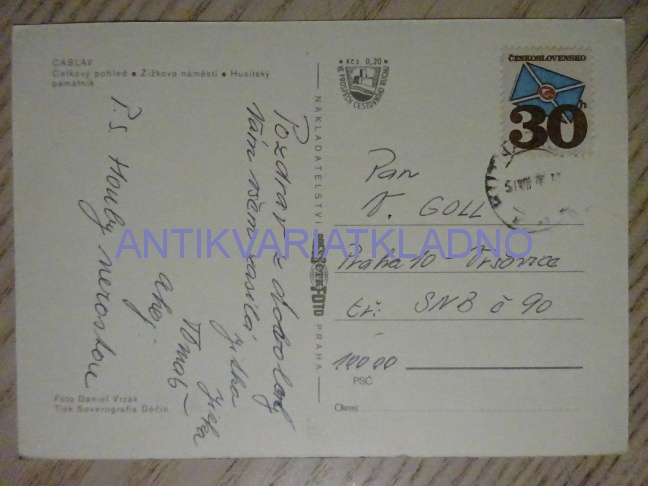 ČÁSLAV
Celkový pohled • Žižkovo náměstí • Husitský
památník
Kčs 0,20
VE PROSPĚCH CESTOVNÍHO RUCHU
ČESKOSLOVENSKO
30h
Pozdrav z dovolené
Vám všem zasílá
Jitka
Tomáš
Jitka
Ahoj
P.S Houby nerostou
NAKLADATELSTVÍ
PRAHA
Pan
V. GOLL
Praha 10 - Vršovice
tř. SNB č 90
100 00
PSČ
Okres
Foto Daniel Vrzák
Tisk Severografia Děčín
ANTIKVARIATKLADNO